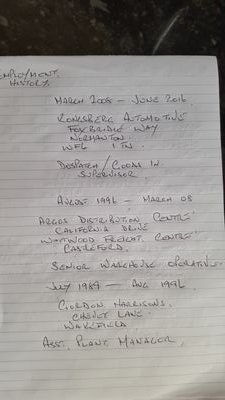 EMPLOYMENT
HISTORY.
MARCH 2008 — JUNE 2016
KONGSBERG AUTOMOTIVE
FOXBRIDGE WAY
NORMANTON.
WF6 1TN.
DESPATCH / GOODS IN
SUPERVISOR.
AUGUST 1996 — MARCH 08
ARGOS DISTRIBUTION CENTRE
CALIFORNIA DRIVE
WHITWOOD FREIGHT CENTRE
CASTLEFORD.
SENIOR WAREHOUSE OPERATIVE
JULY 1989 — AUG 1996
GORDON HARRISONS.
CHEVET LANE.
WAKEFIELD
ASST. PLANT MANAGER.